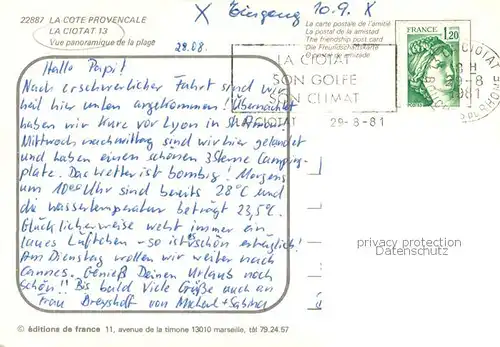 22887 LA COTE PROVENCALE
LA CIOTAT 13
Vue panoramique de la plage
X Eingang 10.9. X
La carte postale de l'amitié
La postal de la amistad
The friendship post card
Die Freundschaftskarte
FRANCE
1,20
28.08.
LA CIOTAT
SON GOLFE
SON CLIMAT
CIOTAT
29-8-81
CIOTAT
H
29-8
1981
B. DU RHONE
Hallo Papi!
Nach beschwerlicher Fahrt sind wir
heil hier unten angekommen! Übernachtet
haben wir kurz vor Lyon in St. Amour
Mittwoch nachmittag sind wir hier gelandet
und haben einen schönen 3 Sterne Camping-
platz. Das Wetter ist bombig! Morgens
um 10⁰⁰ Uhr sind bereits 28°C und
die Wassertemperatur beträgt 23,5°C.
Glücklicherweise weht immer ein
laues Lüftchen - so ist es schön erträglich!
Am Dienstag wollen wir weiter nach
Cannes. Genieß Deinen Urlaub noch
schön!! Bis bald viele Grüße auch an
Frau von Michael + Sabine
privacy protection
Datenschutz
© éditions de france 11, avenue de la timone 13010 marseille, tél 79.24.57